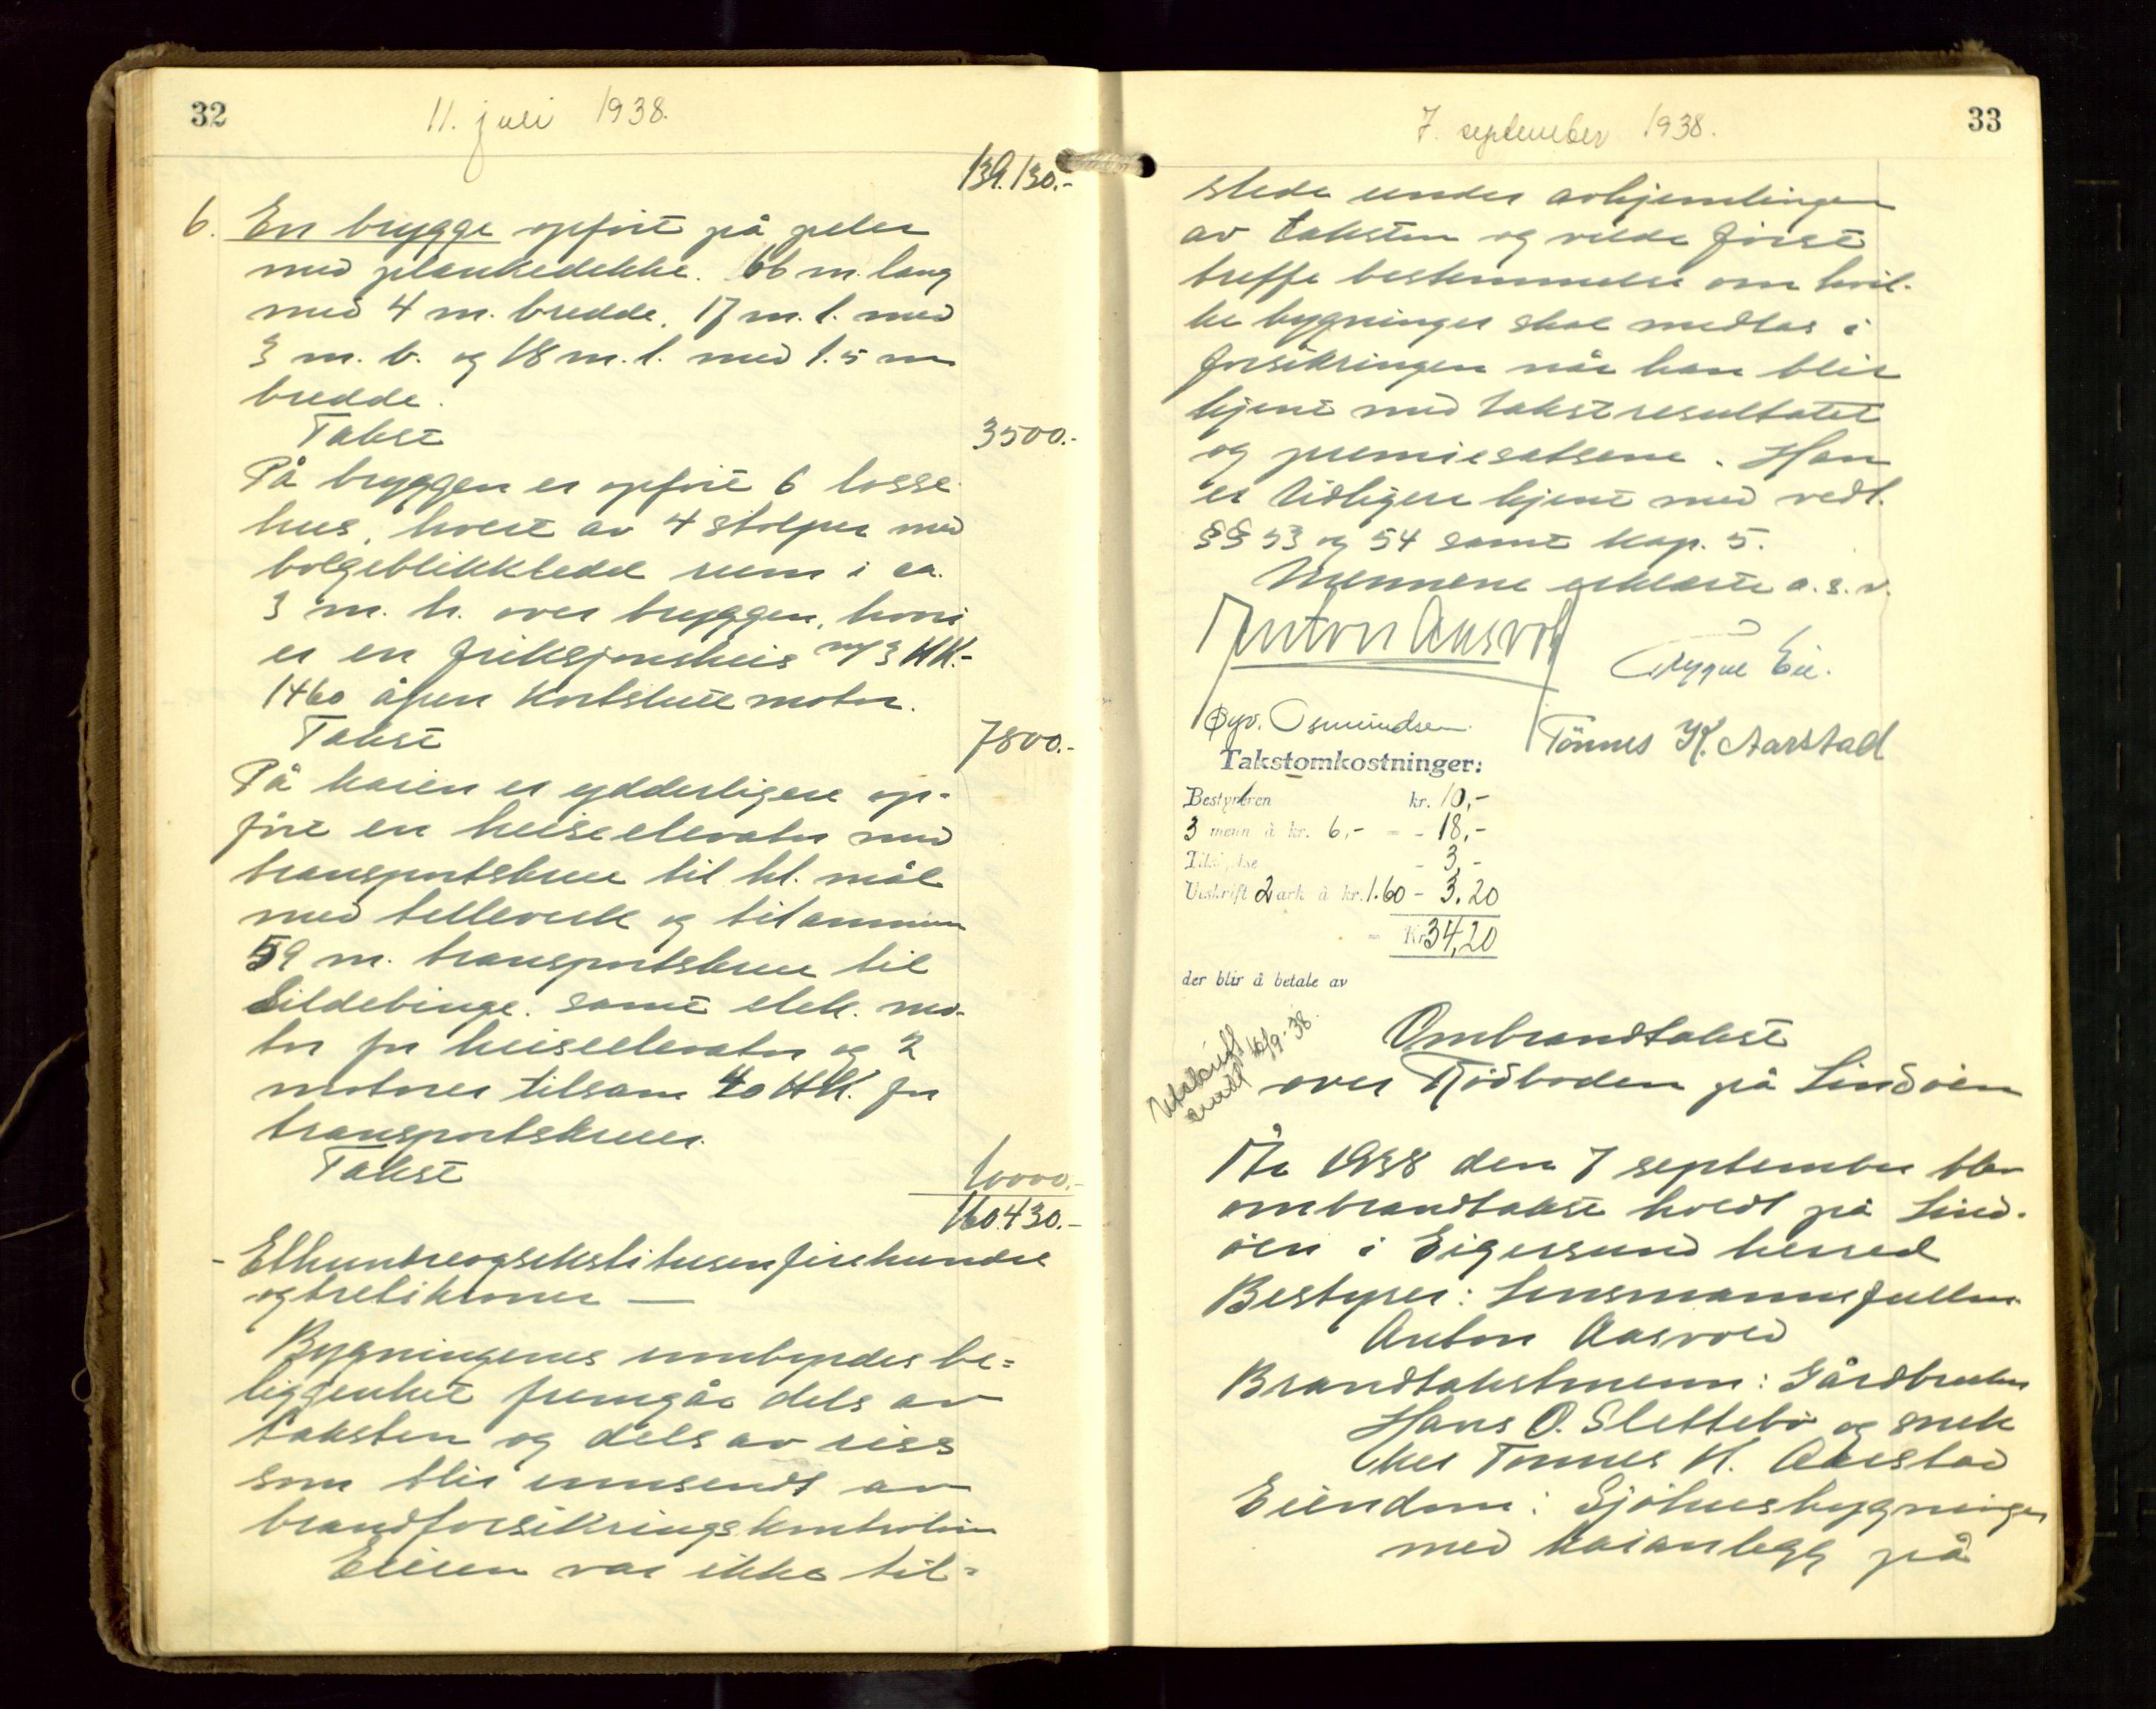 32
11. juli 1938.
139.130.-
6. En brygge opfört på peler
med plankedekke. 66 m. lang
med 4 m. bredde, 17 m. l. med
3 m. b. og 18 m. l. med 1.5 m
bredde.
Takst 3500.-
På bryggen er opfört 6 losse
hus, hvert av 4 stolper med
bølgeblikkledd rum i ca.
3 m. h. over bryggen, hvori
er en friksjonsheis m/3 HK.-
1460 åpen kortslutt motor.
Takst 7800.-
På kaien er ydderligere op-
fört en heiseelevator med
transportskrue til hl. mål
med telleverk og tilsammen
59 m. transportskrue til
Sildebinge. samt elek. mo-
tor for heiseelevator og 2
motorer tilsam 40 HK. for
transportskruer.
Takst 10000.-
160.430.-
- Etthundreogsekstitusenfirehundre
ogtretikroner —
Bygningenes innbyrdes be=
liggenhet fremgår dels av
taksten og dels av riss
som blir innsendt av
brandforsikringskontrolören
Eieren var ikke til=
7. september 1938.
33
stede under avhjemlingen
av taksten og vilde först
treffe bestemmelse om hvil-
ke bygninger skal medtas i
forsikringen når han blir
kjent med takstresultatet
og premiesatsene. Han
er tidligere kjent med vedt.
§§ 53 og 54 samt kap. 5.
Mennene erklærte o. s. v.
Anton Aasvold
Trygve Eie.
Øyv. Osmundsen
Tönnes K. Aarstad
Takstomkostninger:
Bestyreren kr. 10,-
3 menn à kr. 6,- = - 18,-
- 3,-
Utskrift 2 ark à kr. 1.60 - 3.20
= Kr 34,20
der blir å betale av
Utskrift
sendt 16/9-38.
Ombrandtakst
over Rödboden på Lindöen
År 1938 den 7 september blev
ombrandtakst holdt på Lind-
öen i Eigersund herred
Bestyrer: Lensmannsfullm.
Anton Aasvold
Brandtakstmenn: Gårdbruker
Hans O. Slettebö og snek
ker Tönnes K. Aarstad
Eiendom: Sjöhusbygninger
med kaianlegg på